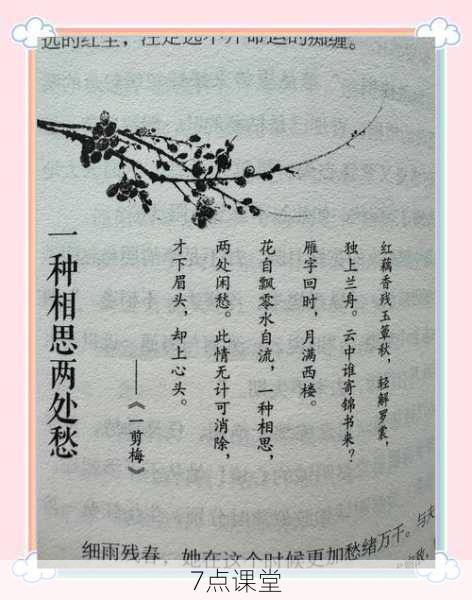 远的红尘，注定逃不开命运的痴缠。
红藕香残玉簟秋，轻解罗裳，
独上兰舟。云中谁寄锦书来？
雁字回时，月满西楼。
花自飘零水自流，一种相思，
两处闲愁。此情无计可消除，
才下眉头，却上心头。
——《一剪梅》
一种相思两处愁
细雨残春，她在这个时候更加愁绪万千。与夫
7点课堂